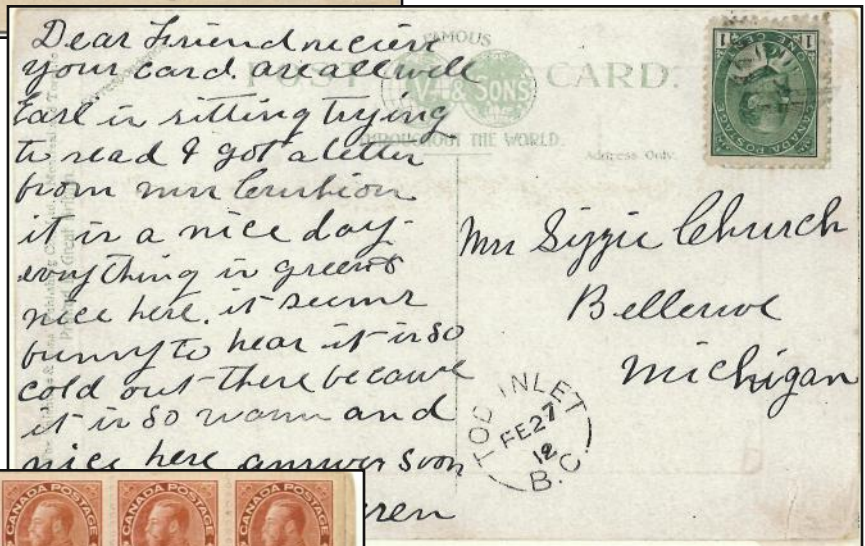 Dear Friend recievd
your card. are all well
Earl is sitting trying
to read I got a letter
from mrs
it is a nice day.
evrything is green &
nice here. it seems
funny to hear it is so
cold out there because
it is so warm and
nice here answer soon
FAMOUS
POST CARD.
V-H & SONS
THROUGHOUT THE WORLD.
Address Only.
1 ONE CENT 1
CANADA POSTAGE
Mrs Lizzie Church
Bellevue
Michigan
TOD INLET
FE 27
12
B.C.
CANADA POSTAGE
CANADA POSTAGE
CANADA POSTAGE